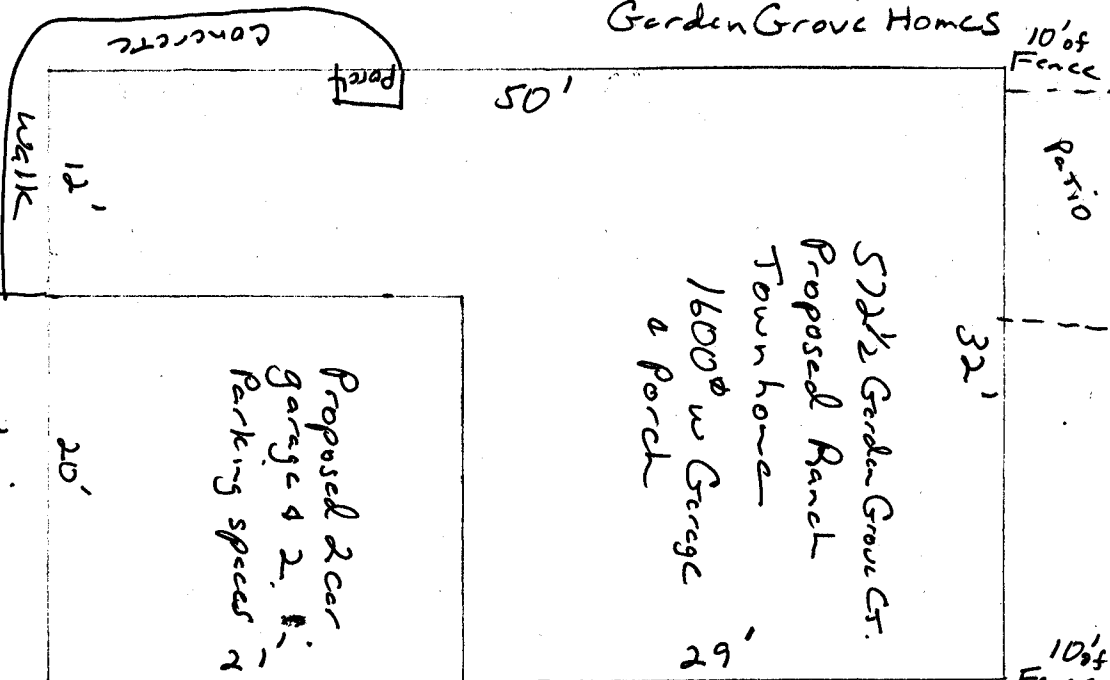 Garden Grove Homes
10' of
Fence
Concrete
Porch
50'
Walk
12'
Patio
572 1/2 Garden Grove Ct.
Proposed Ranch
Townhome
1600 w Garage
a Porch
32'
Proposed 2 car
garage & 2
Parking spaces
20'
21'
29'
10' of